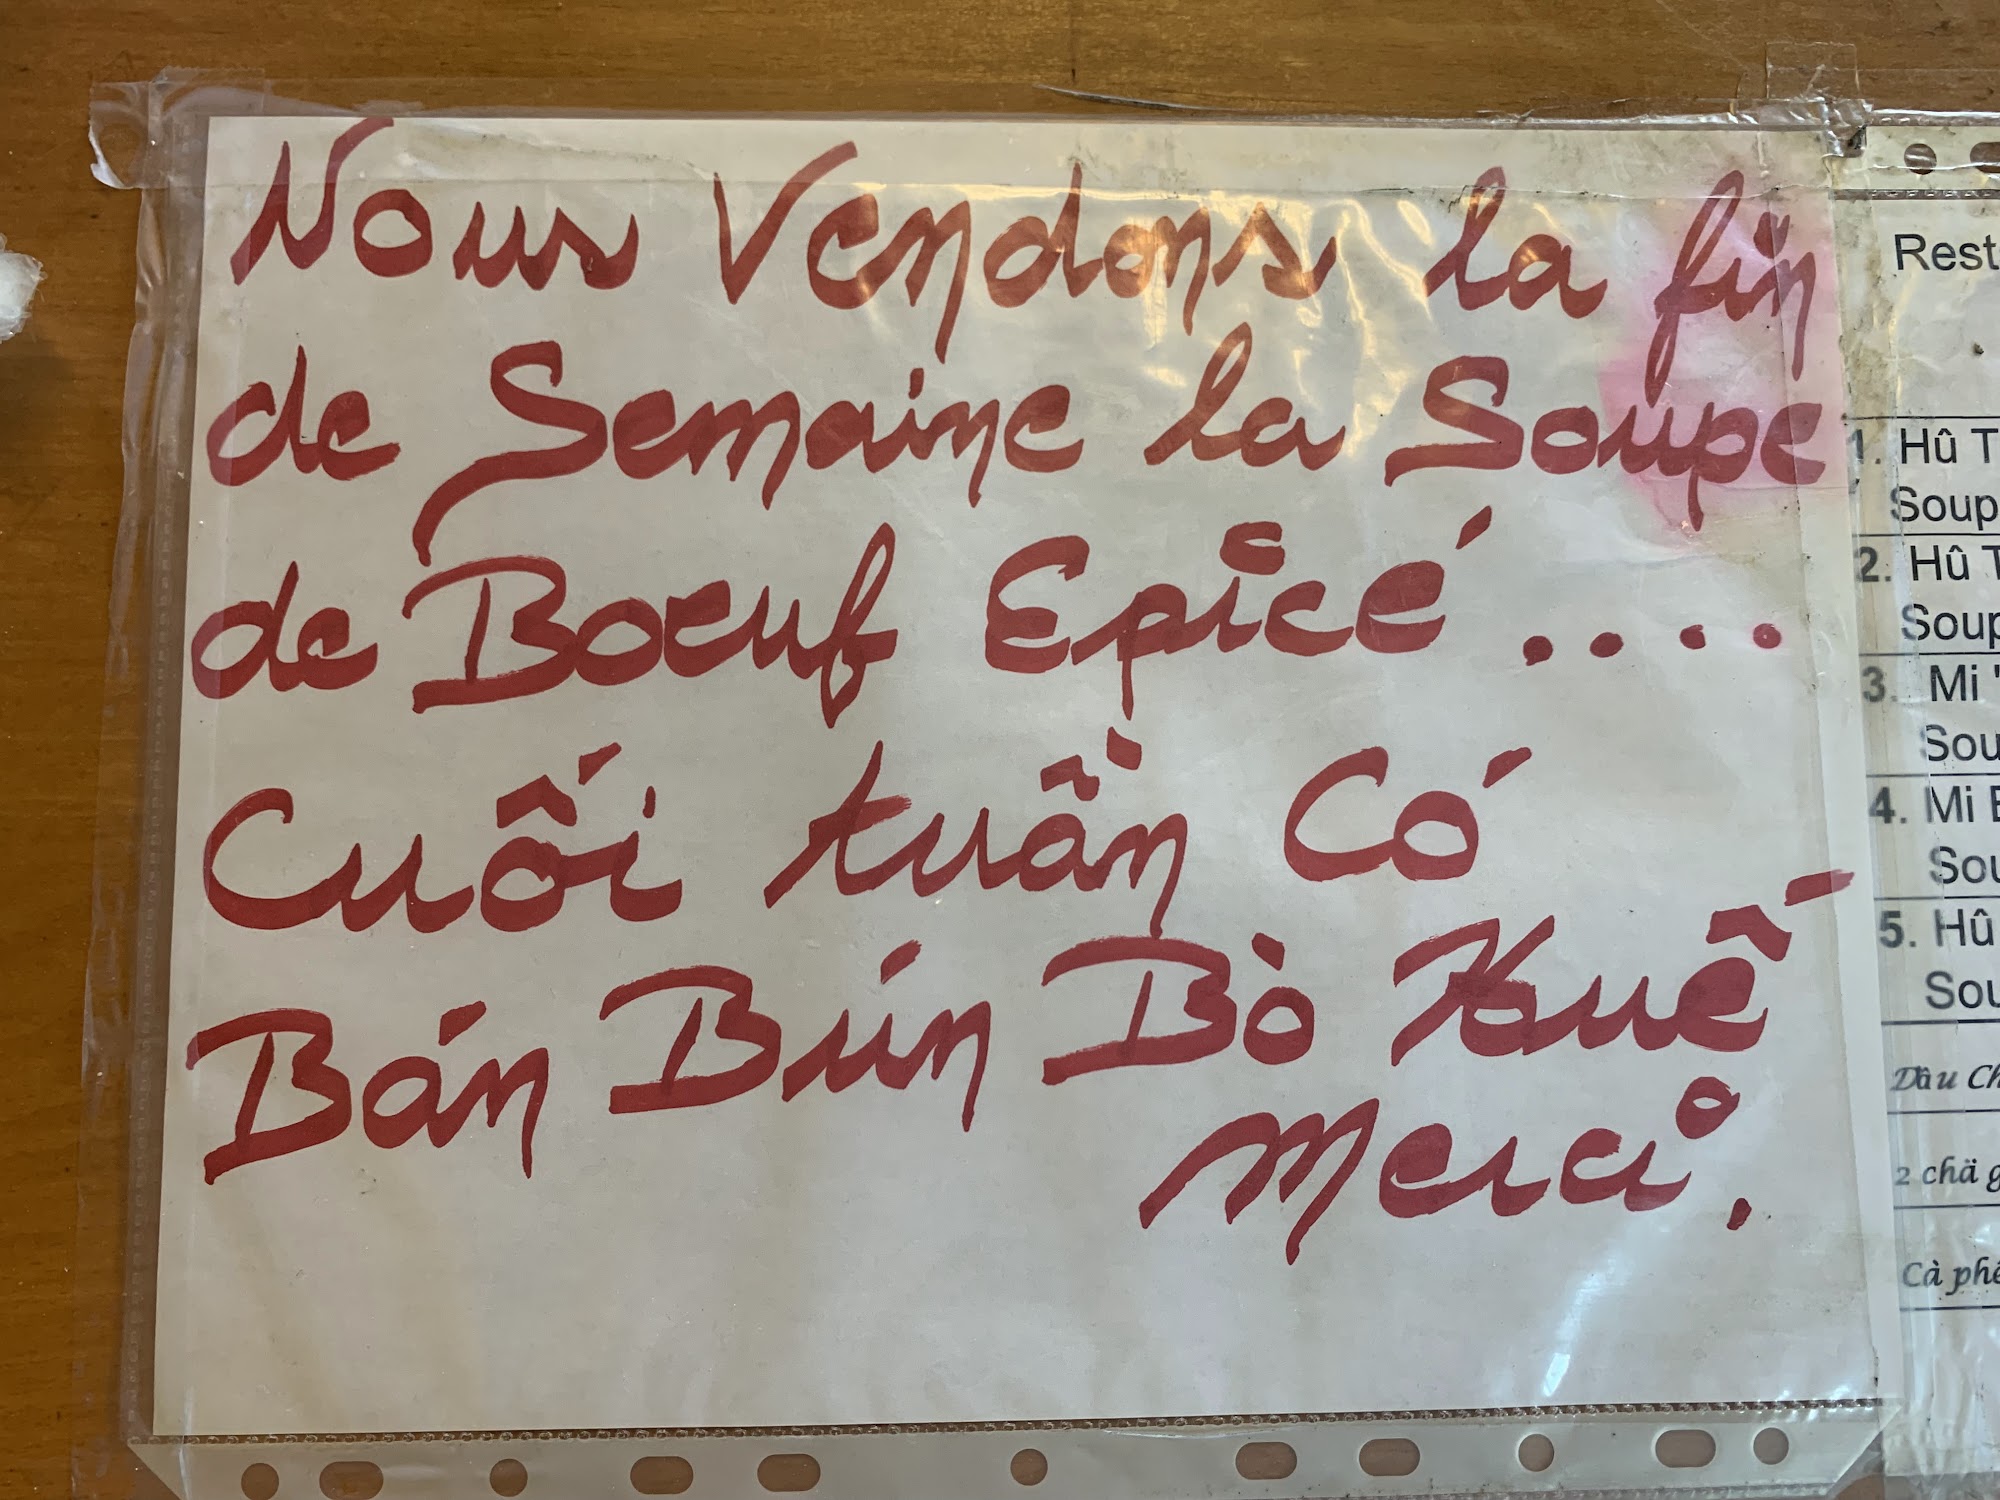 Nous Vendons la fin
de Semaine la Soupe
de Boeuf Epicé.....
Cuối tuần Có
Bán Bún Bò Huế
Merci.
Rest
1. Hû T
Soup
2. Hû T
Soup
3. Mi
Sou
4. Mi B
Sou
5. Hû
Sou
Dâu Ch
2 chä g
Cà phê